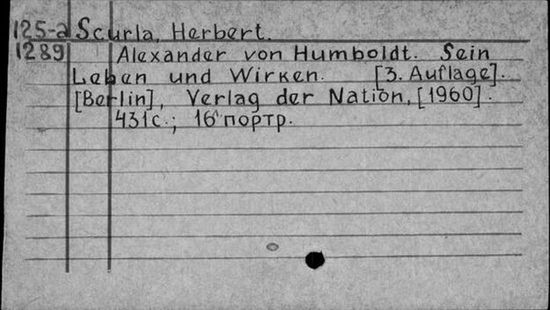 125-2 Scurla, Herbert.
1289 Alexander von Humboldt. Sein
Leben und Wirken. [3. Auflage].
[Berlin], Verlag der Nation, [1960].
431 с.; 16 портр.